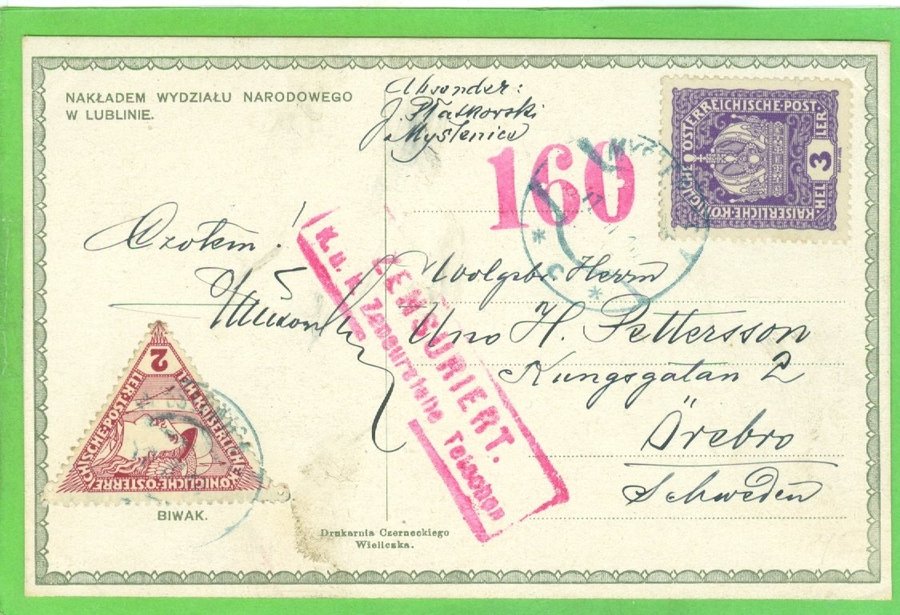 NAKŁADEM WYDZIAŁU NARODOWEGO
W LUBLINIE.
Absender:
J. Płatkowski
Myślenice
160
KAISERLICHE KÖNIGLICHE ÖSTERREICHISCHE POST
3 HELLER
Czołem!
ZENSURIERT.
K. u. k. Zensurstelle Teschen
Wolgeb. Herrn
Uno H. Pettersson
Kungsgatan 2
Örebro
Schweden
2
KAISERLICHE KÖNIGLICHE ÖSTERREICHISCHE POST
BIWAK.
Drukarnia Czerneckiego
Wieliczka.